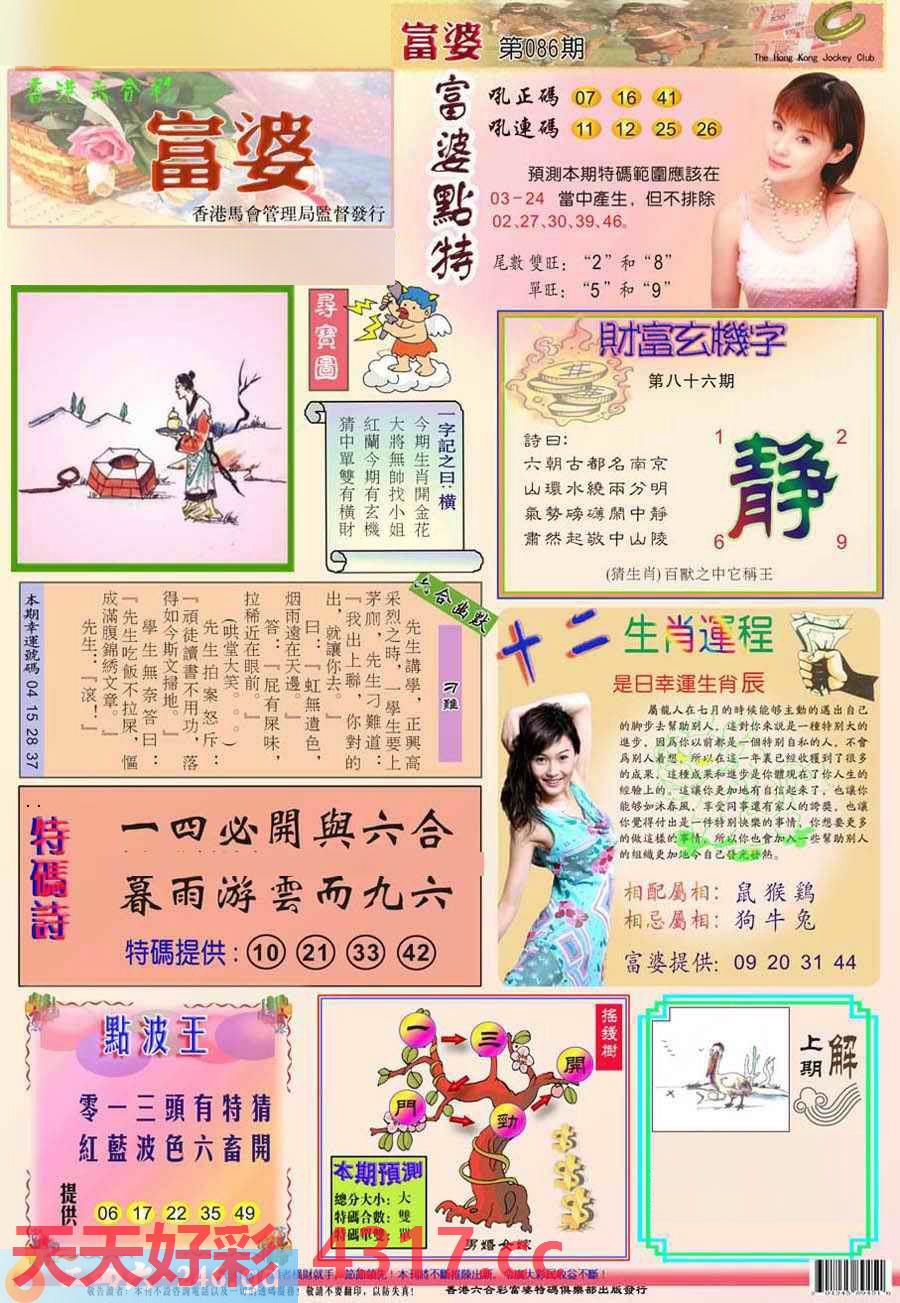 富婆 第086期
The Hong Kong Jockey Club
香港六合彩
富婆
香港馬會管理局監督發行
富婆點特
吼正碼 07 16 41
吼連碼 11 12 25 26
預測本期特碼範圍應該在
03-24 當中產生，但不排除
02、27、30、39、46。
尾數雙旺：“2”和“8”
單旺：“5”和“9”
尋寶圖
一字記之曰：橫
今期生肖開金花
大將無帥找小姐
紅蘭今期有玄機
猜中單雙有橫財
財富玄機字
第八十六期
詩曰：
六朝古都名南京
山環水繞兩分明
氣勢磅礴鬧中靜
肅然起敬中山陵
1 2
靜
6 9
(猜生肖) 百獸之中它稱王
六合幽默
刁難
先生講學，正興高
采烈之時，一學生要上
茅廁，先生刁難道：
『我出上聯，你對的
出，就讓你去。』
曰：『虹無遺色，
烟雨遠在天邊。』
答：『屁有屎味，
拉稀近在眼前。』
（哄堂大笑。。。）
先生拍案怒斥：
『頑徒讀書不用功，落
得如今斯文掃地。』
學生無奈答曰：
『先生吃飯不拉屎，慪
成滿腹錦綉文章。』
先生：『滾！』
本期幸運號碼 04 15 28 37
十二生肖運程
是日幸運生肖辰
屬龍人在七月的時候能够主動的邁出自己
的脚步去幫助别人，這對你來說是一種特别大的
進步，因爲你以前都是一個特别自私的人，不會
爲别人着想，所以在這一年裏已經收獲到了很多
的成果，這種成果和進步是你體現在了你人生的
經驗上的。這讓你更加地有自信起來了，也讓你
能够如沐春風，享受同事還有家人的誇奬，也讓
你覺得付出是一件特别快樂的事情，你想要更多
的做這樣的事情，所以你也會加入一些幫助别人
的組織更加地令自己發光發熱。
相配屬相：鼠猴鷄
相忌屬相：狗牛兔
富婆提供：09 20 31 44
特碼詩
一四必開與六合
暮雨游雲而九六
特碼提供：10 21 33 42
點波王
零一三頭有特猜
紅藍波色六畜開
提供 06 17 22 35 49
摇錢樹
一 三 開
門 勁
本期預測
總分大小：大
特碼合數：雙
特碼單雙：單
男婚女嫁
上期解
天天好彩 4317.cc
香港六合彩富婆特碼俱樂部出版發行